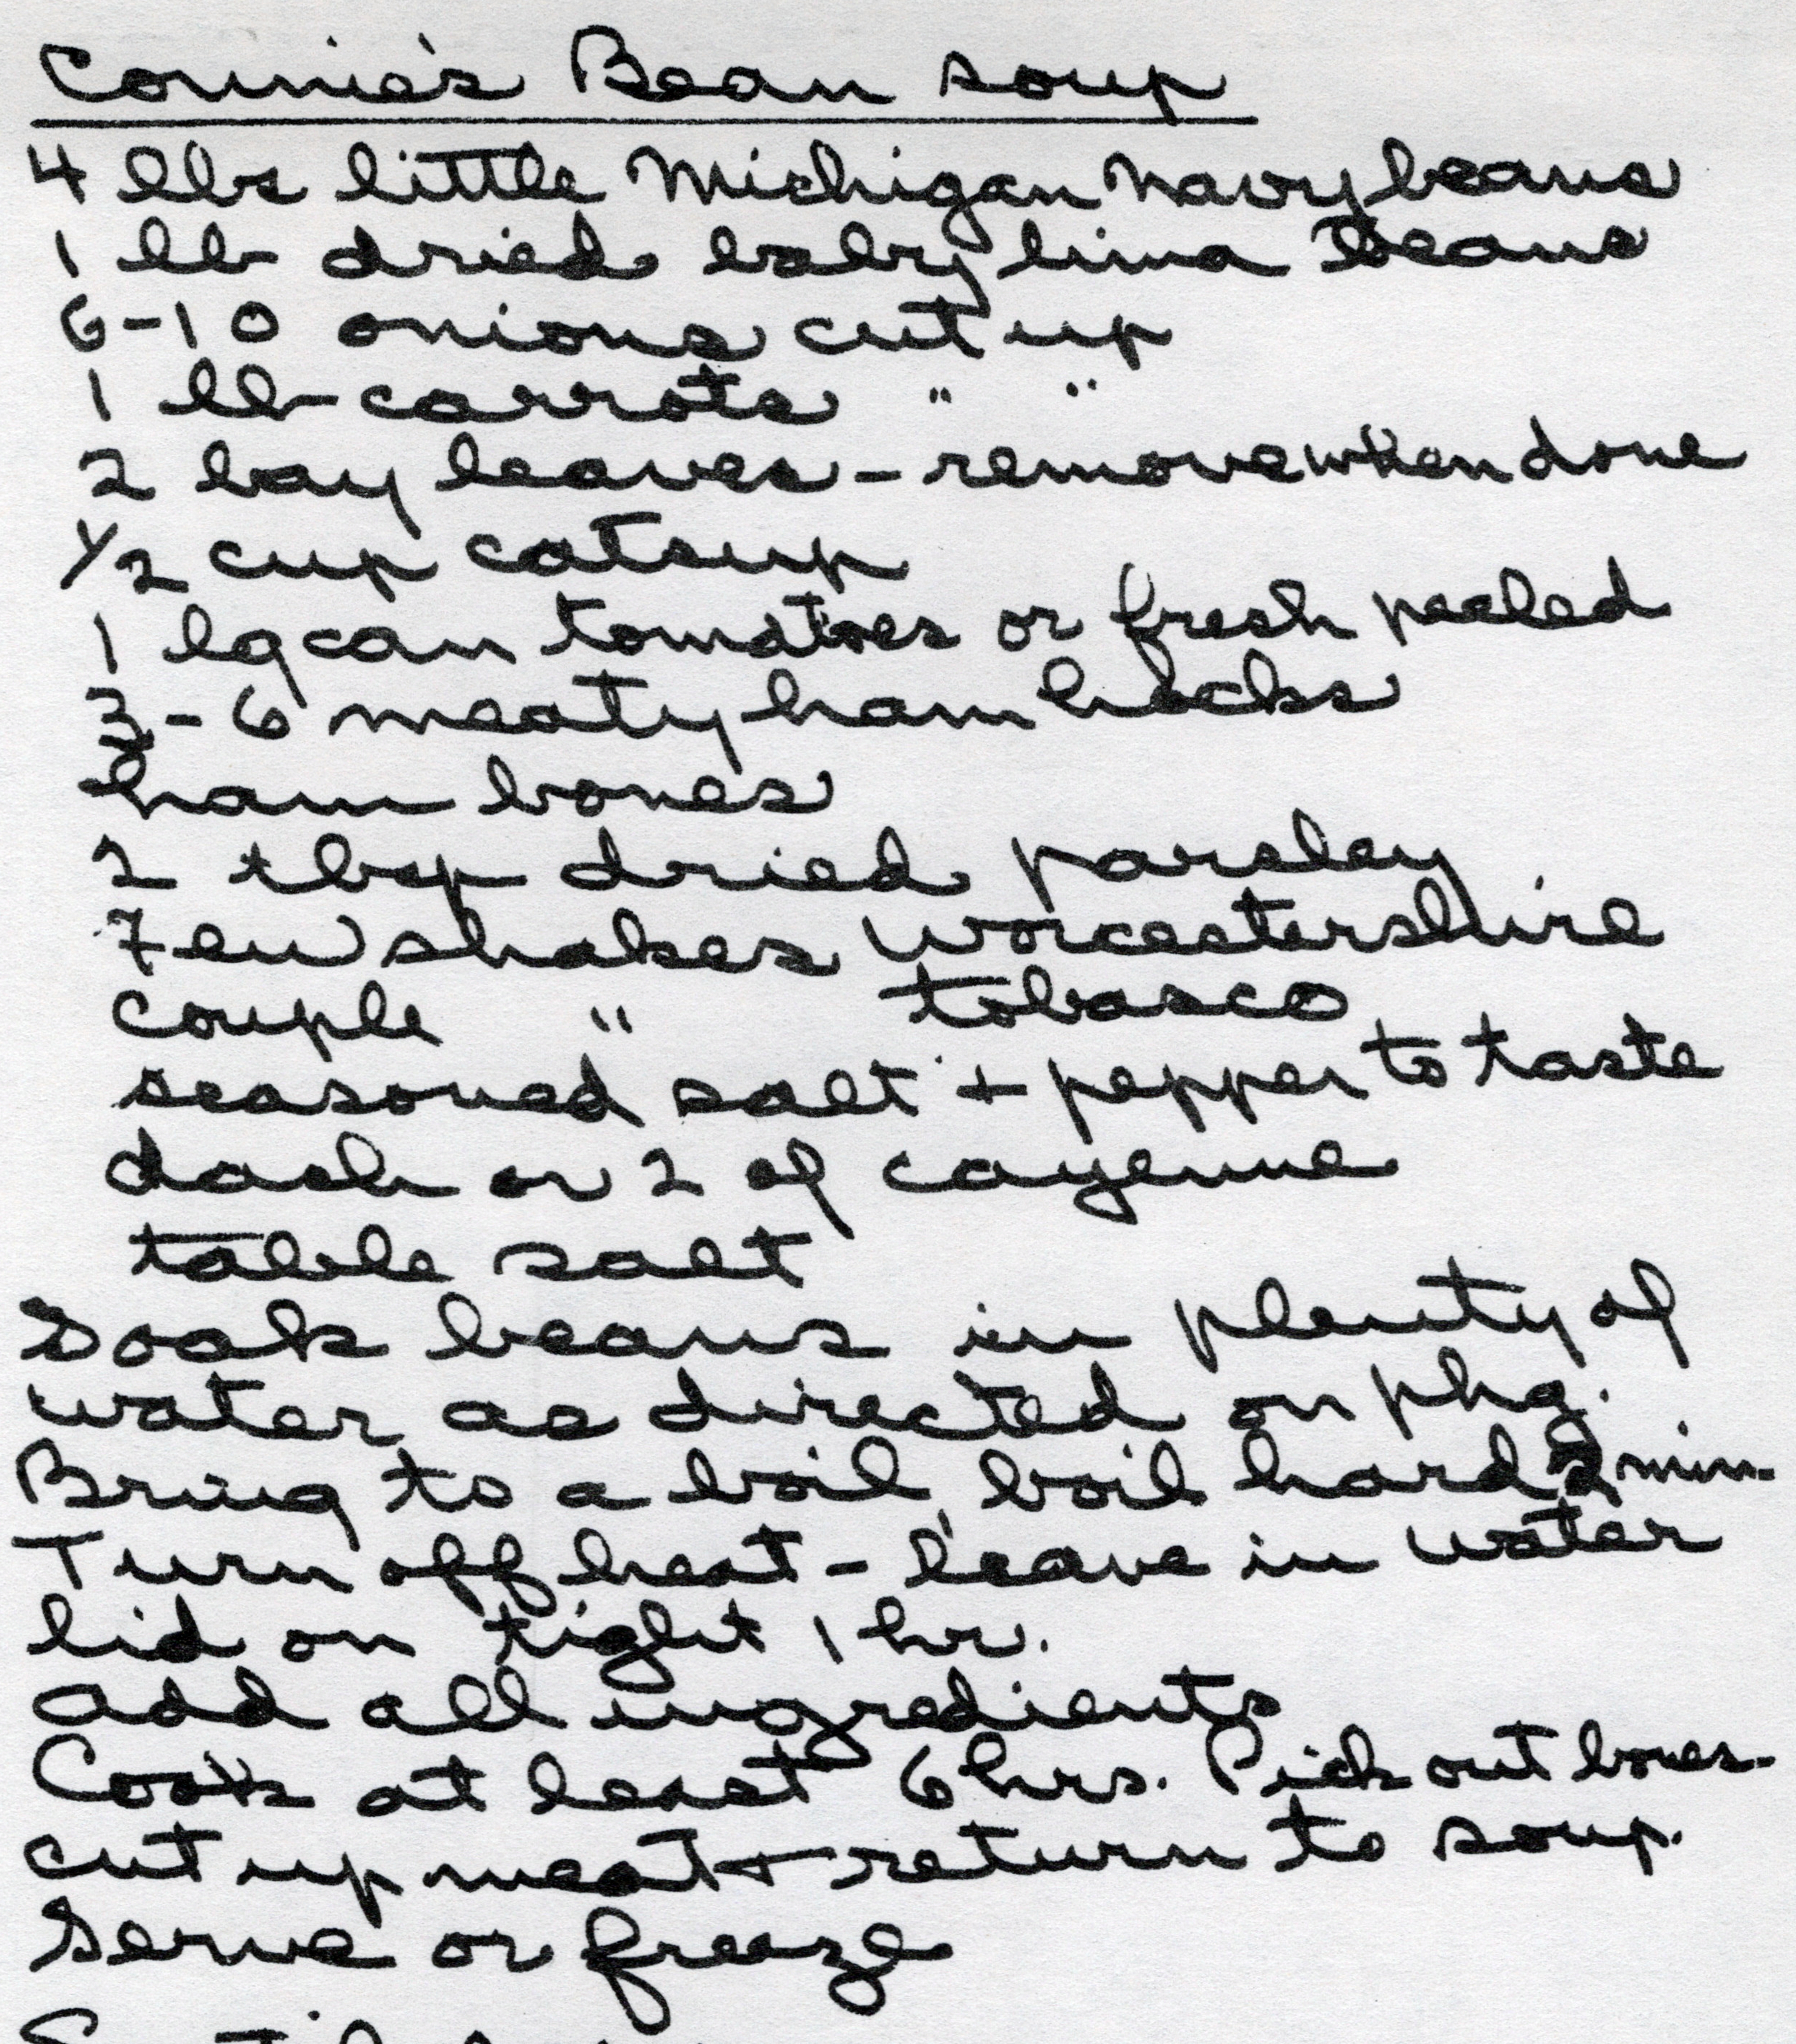 Connie's Bean soup
4 lbs little Michigan Navy beans
1 lb dried baby lima Beans
6-10 onions cut up
1 lb carrots " "
2 bay leaves - remove when done
1/2 cup catsup
1 lg can tomatoes or fresh peeled
3-6 meaty ham hocks
ham bones
2 tbsp dried parsley
Few shakes Worcestershire
Couple " tobasco
seasoned salt + pepper to taste
dash or 2 of cayenne
table salt
Soak beans in plenty of
water as directed on pkg.
Bring to a boil, boil hard 2 min.
Turn off heat - leave in water
lid on tight 1 hr.
Add all ingredients
Cook at least 6 hrs. Pick out bones.
cut up meat + return to soup.
Serve or freeze